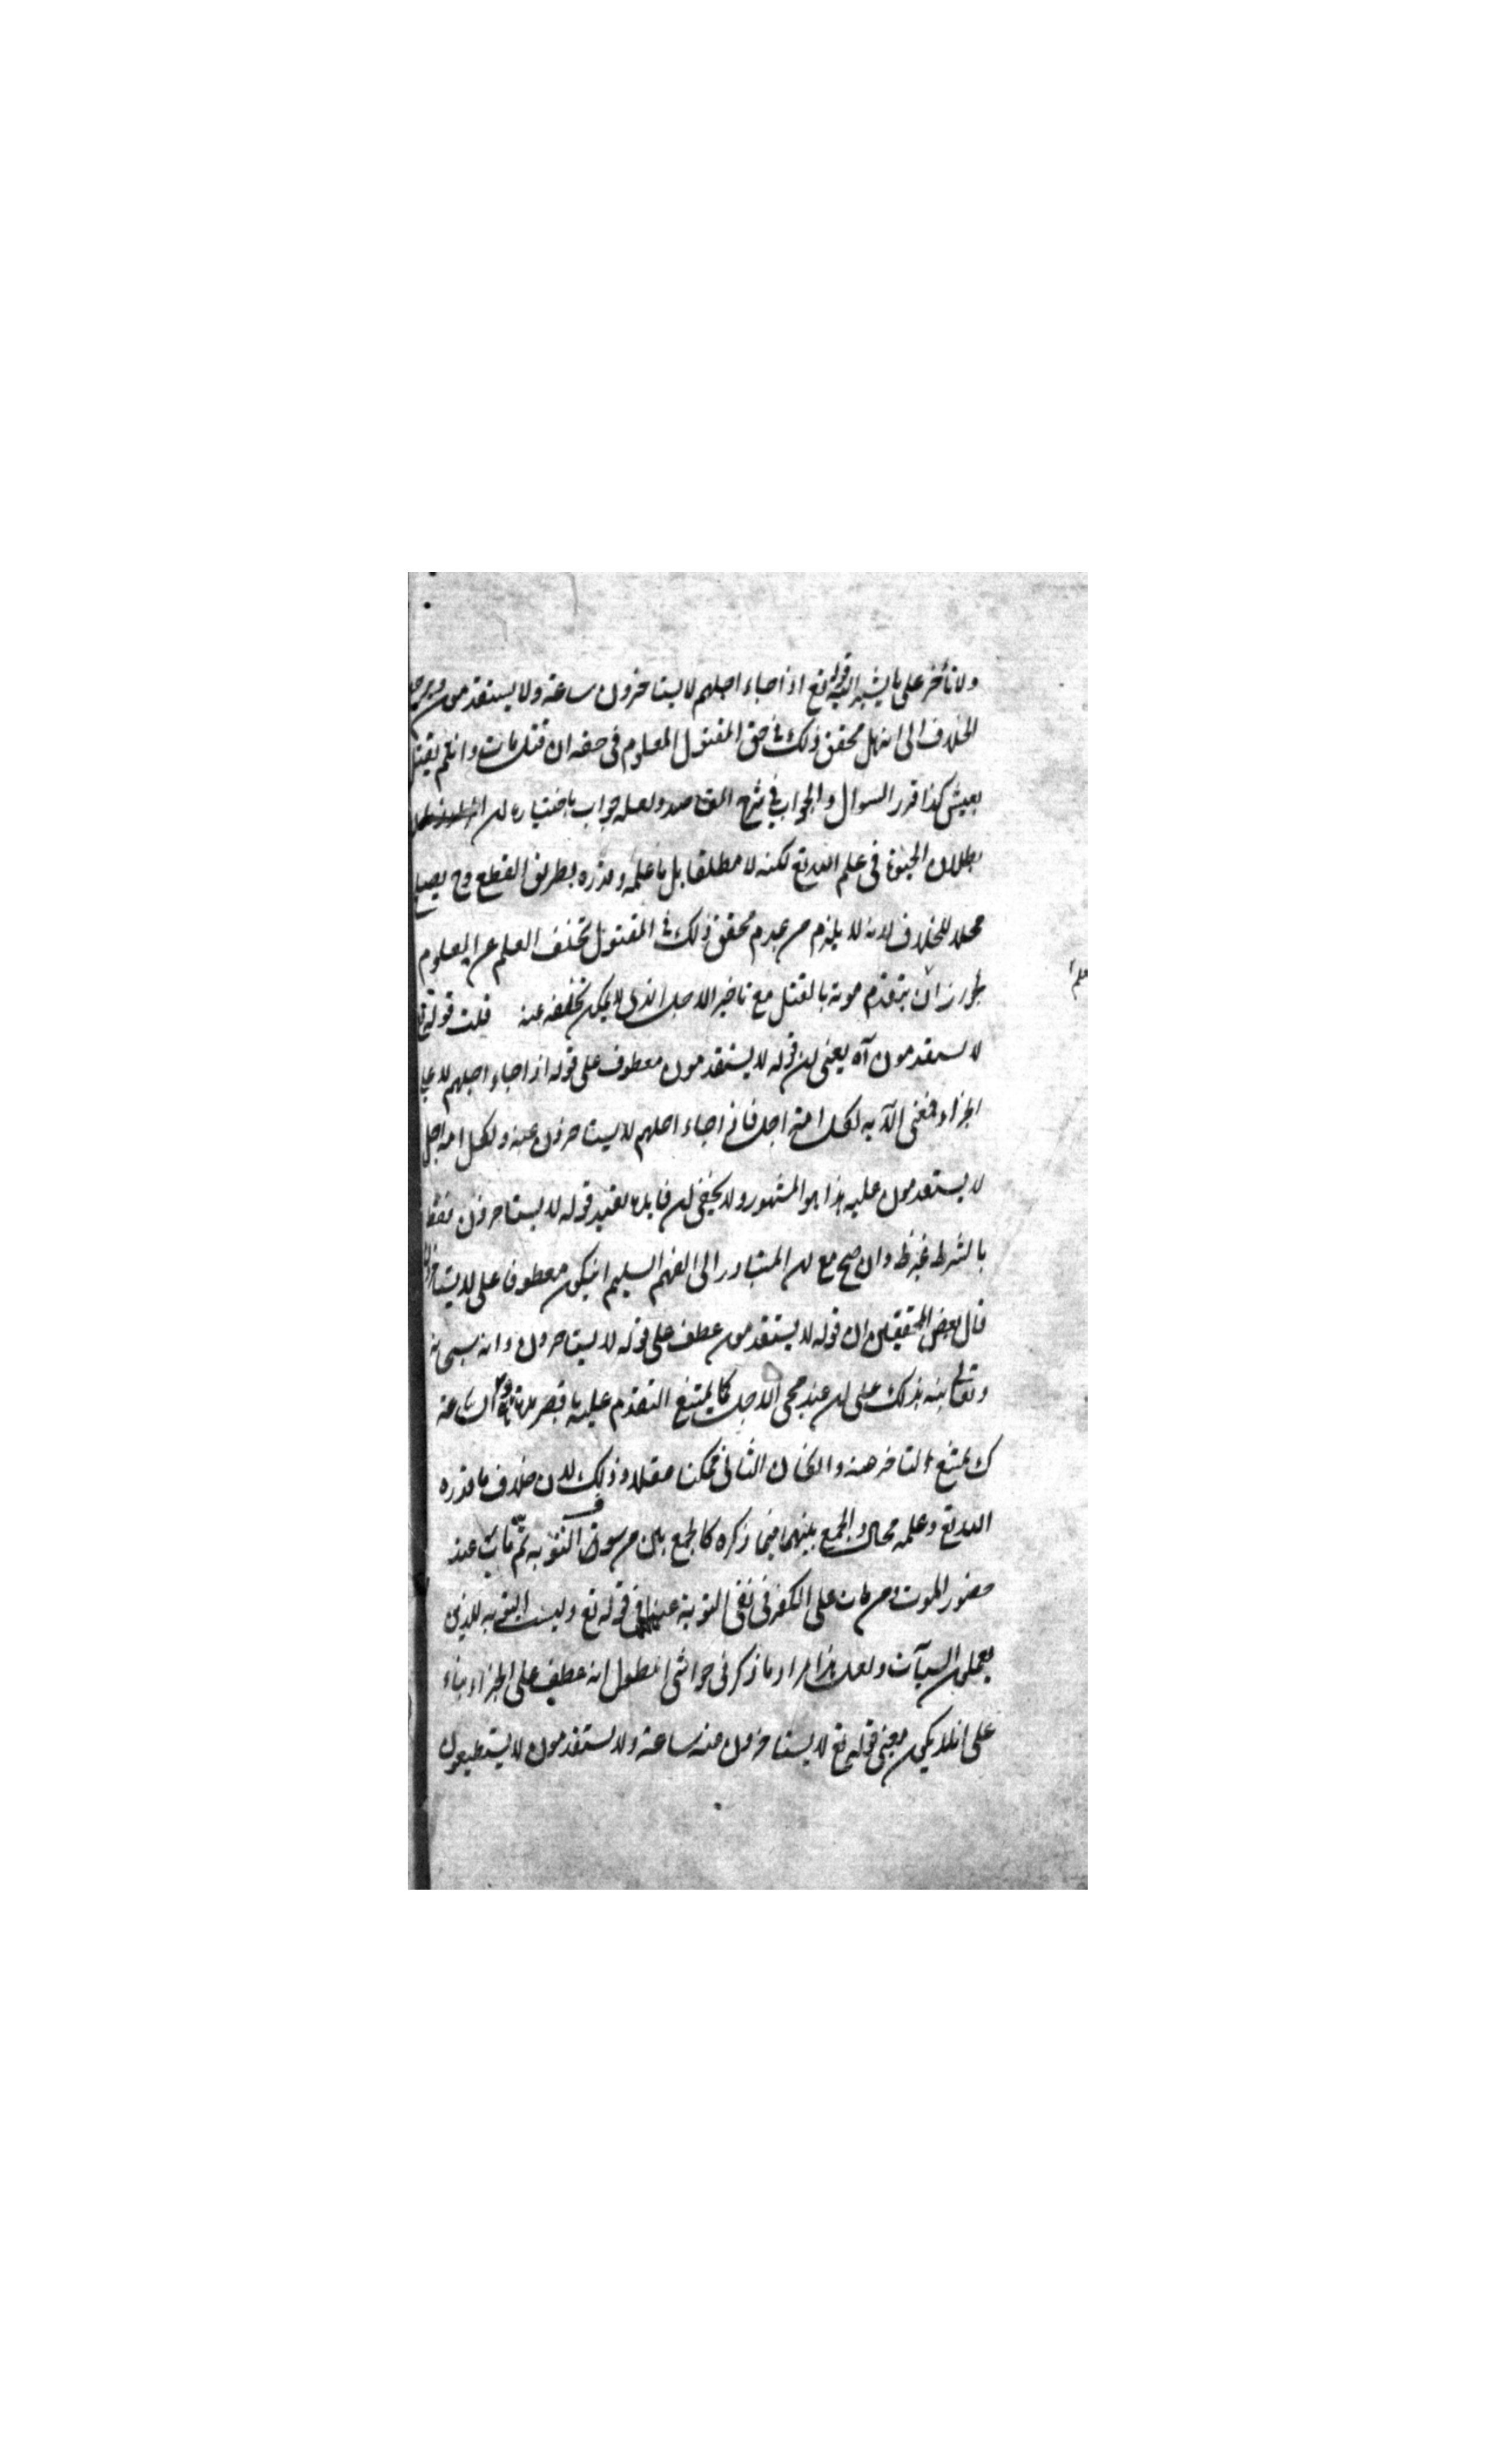 ولا تأخر على ما يشير اليه قوله تع اذا جاء اجلهم لا يستاخرون ساعة ولا يستقدمون
الخلاف الى انه هل تحقق ذلك في حق المقتول المعلوم في حقه ان قتل مات وان لم يقتل
يعيش كذا قرر السوال والجواب في شرح المقاصد ولعله جواب باختيار ان
بطلان الحيوة في علم الله تع لكنه لا مطلقا بل ما علمه وقدره بطريق القطع وح يصلح
محلا للخلاف لانه لا يلزم من عدم تحقق ذلك في المقتول تخلف العلم عن المعلوم
لجواز ان يتقدم موته بالقتل مع تاخير الاجل الذي لا يمكن تخلفه عنه قلت قوله تع
لا يستقدمون آه يعني ان قوله لا يستقدمون معطوف على قوله اذا جاء اجلهم لا على
الجزاء فمعنى الآية لكل امة اجل فاذا جاء اجلهم لا يستاخرون عنه ولكل امة اجل
لا يستقدمون عليه هذا هو المشهور ولا يخفى ان فايدة تقييد قوله لا يستاخرون فقط
بالشرط غير ظ وان صح مع ان المتبادر الى الفهم السليم ان يكون معطوفا على لا يستاخرون
قال بعض المحققين ان قوله لا يستقدمون عطف على قوله لا يستاخرون وانه سبحانه
وتعالى نبه بذلك على ان عند مجئ الاجل كما يمتنع التقدم عليه باقصر مدة الساعة
ك يمتنع التاخر عنه وان كان الثاني ممكنا عقلا وذلك لان خلاف ما قدره
الله تع وعلمه محال والجمع بينهما فيما ذكره كالجمع بين من سوف التوبة ثم مات عند
حضور الموت ومن مات على الكفر في نفي التوبة عنه في قوله تع وليست التوبة للذين
يعملون السيآت ولعل هذا مراد ما ذكر في حواشي المطول انه عطف على الجزاء بناء
على انه لا يكون معنى قوله تع لا يستاخرون عنه ساعة ولا يستقدمون لا يستطيعون